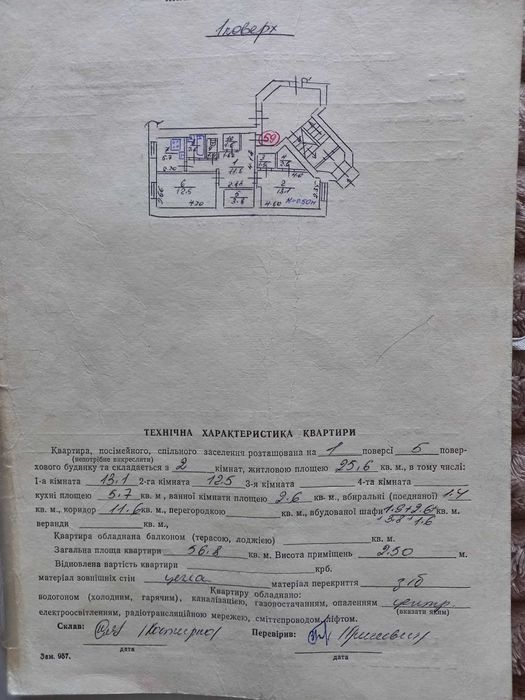 1 поверх
59
ТЕХНІЧНА ХАРАКТЕРИСТИКА КВАРТИРИ
Квартира, посімейного, спільного заселення розташована на 1 поверсі 5 повер-
(непотрібне викреслити)
хового будинку та складається з 2 кімнат, житловою площею 25.6 кв. м., в тому числі:
1-а кімната 13.1 2-га кімната 12.5 3-я кімната 4-та кімната
кухні площею 5.7 кв. м, ванної кімнати площею 2.6 кв. м., вбиральні (поєднаної) 1.4
кв. м., коридор 11.6 кв. м., перегородкою кв. м., вбудованої шафи 1.9+2.6+ кв. м.
+3.8+1.6
веранди кв. м.,
Квартира обладнана балконом (терасою, лоджією) кв. м.
Загальна площа квартири 56.8 кв. м. Висота приміщень 2.50 м.
Відновлена вартість квартири крб.
матеріал зовнішніх стін цегла матеріал перекриття з/б
Квартиру обладнано:
водогоном (холодним, гарячим), каналізацією, газопостачанням, опаленням центр.
(вказати яким)
електроосвітленням, радіотрансляційною мережею, сміттєпроводом, ліфтом.
Склав: Перевірив:
дата дата
Зам. 957.